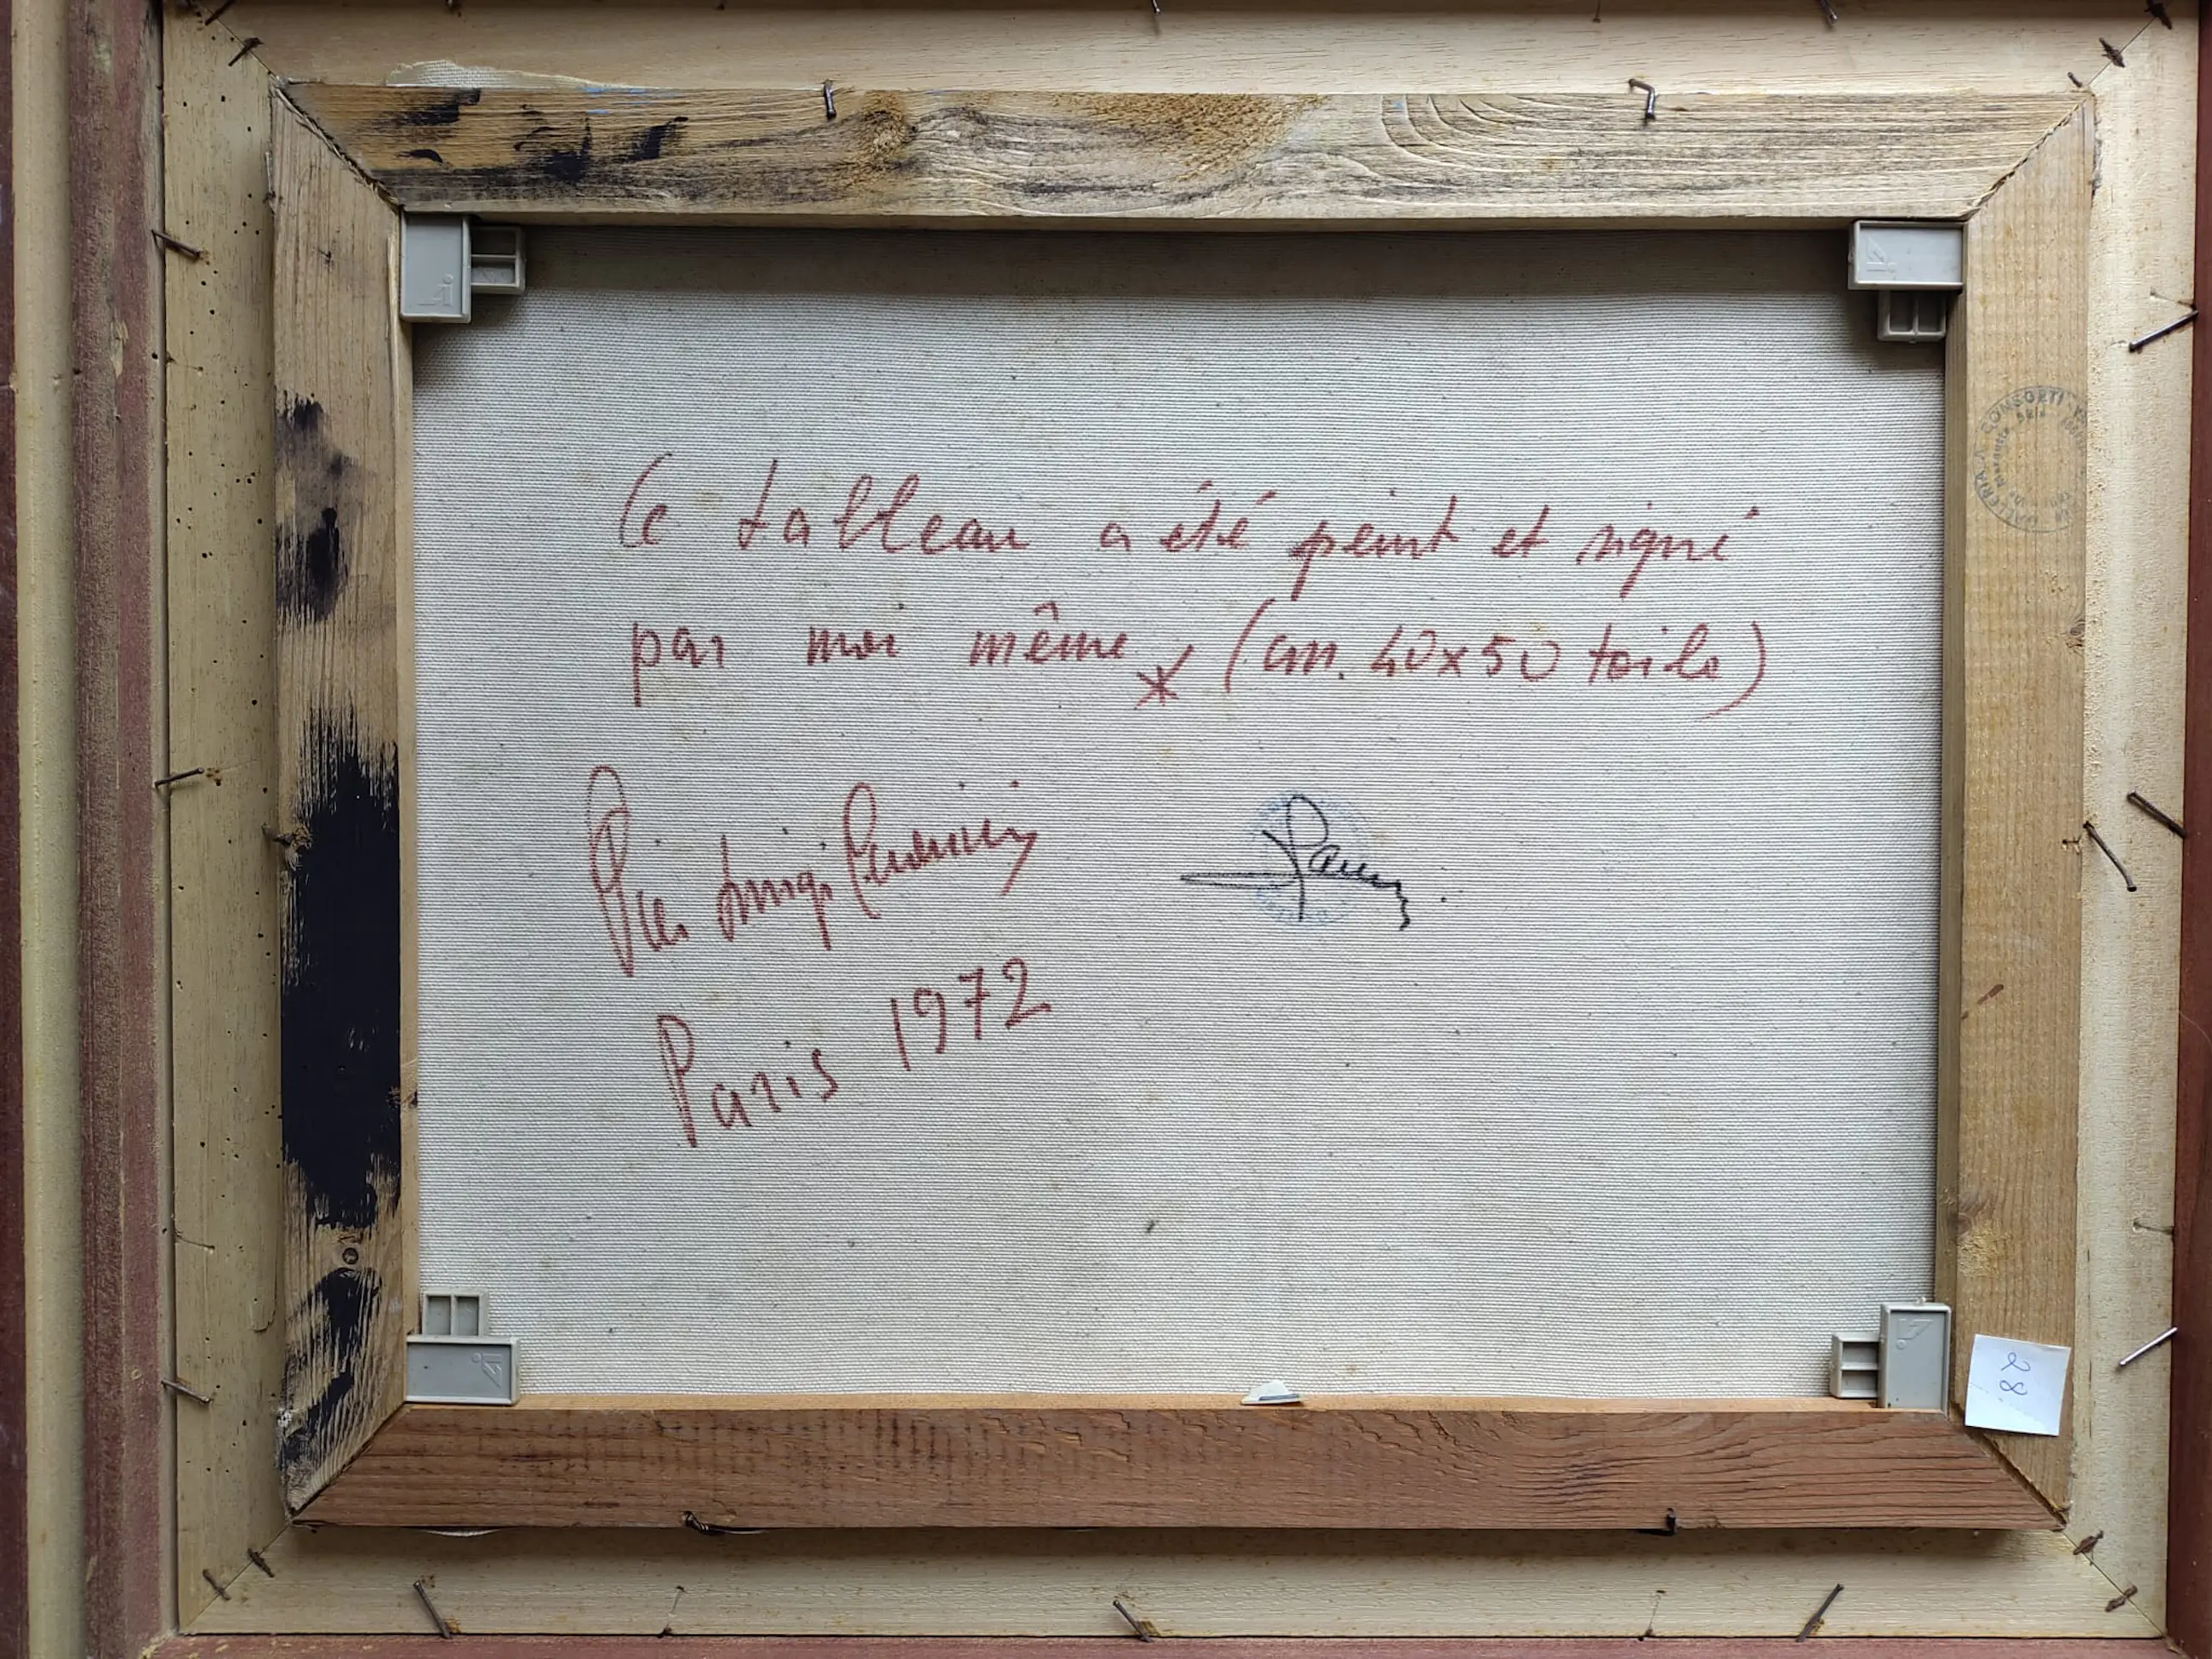 Ce tableau a été peint et signé
par moi même * (cm. 40x50 toile)
Pier Luigi
Paris 1972
GALLERIA CONSORTI
28